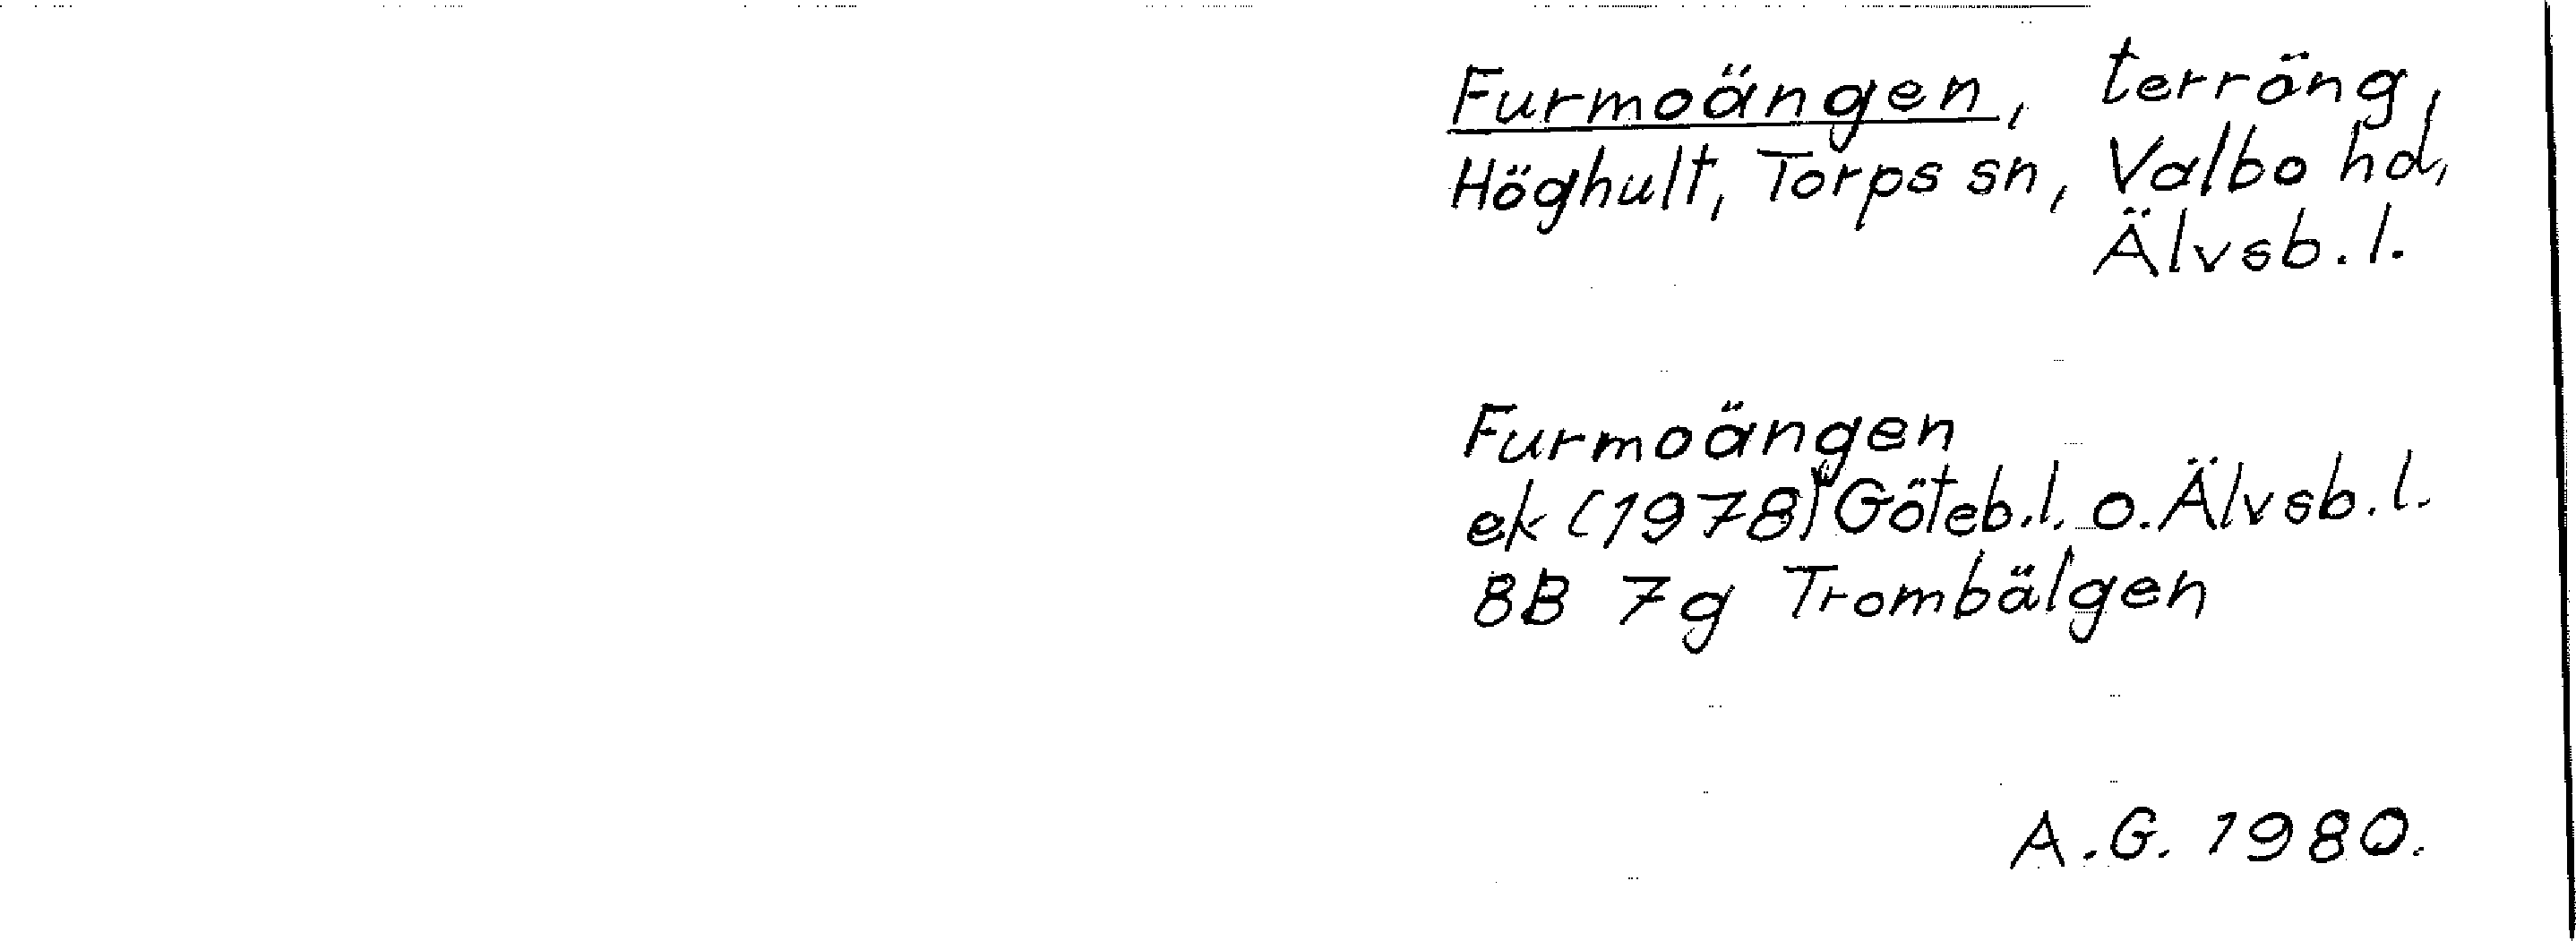 Furmoängen, terräng,
Höghult, Torps sn, Valbo hd,
Älvsb. l.
Furmoängen
ek (1978) Göteb.l. o. Älvsb. l.
8B 7g Trombälgen
A.G. 1980.